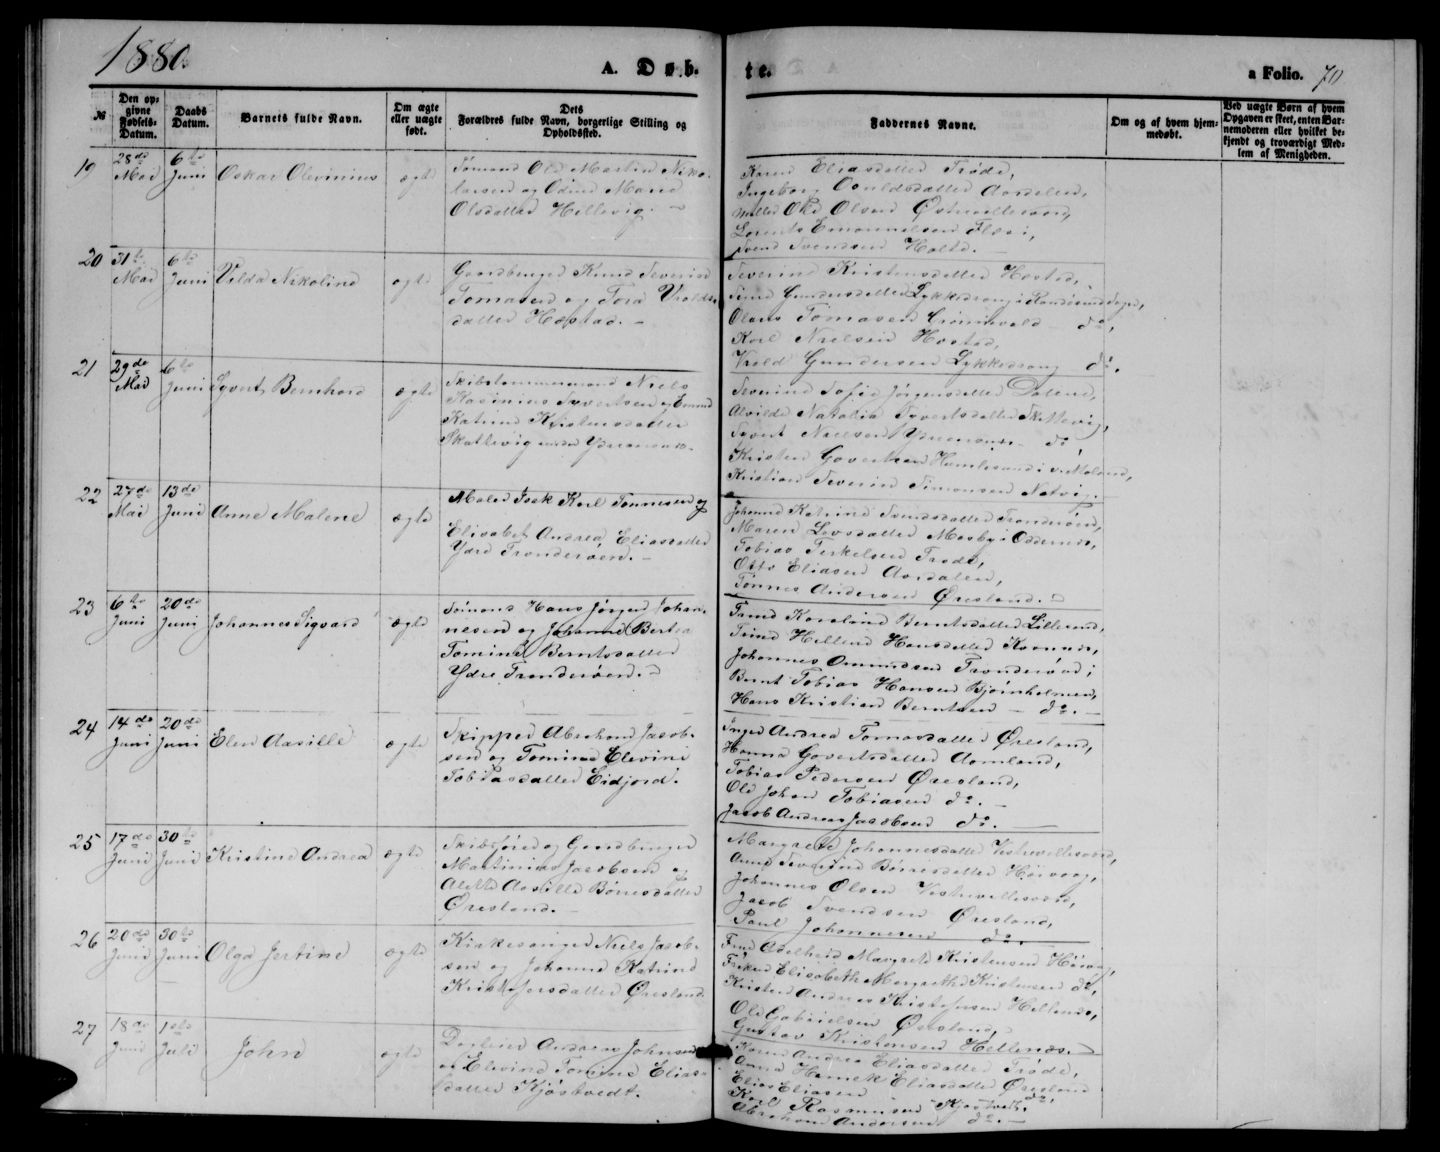 1880.
A. Døb-
te.
a Folio. 70
№
Den op-
givne
Fødsels-
Datum.
Daabs
Datum.
Barnets fulde Navn.
Om ægte
eller uægte
født.
Dets
Forældres fulde Navn, borgerlige Stilling og
Opholdssted.
Faddernes Navne.
Om og af hvem hjem-
medøbt.
Ved uægte Børn af hvem
Opgaven er skeet, enten Bar-
nemoderen eller hvilket be-
kjendt og troværdigt Med-
lem af Menigheden.
19
28de
Mai
6te
Juni
Oskar Olevinius
ægte
Sømand Ole Martin Niko-
laisen og Odine Marie
Olsdatter Hellevig. —
Karen Eliasdatter Trøde,
Ingeborg Aardalen,
Ole Olsen
Lorents Emanuelsen
Svend Svendsen Holte.
20
31te
Mai
6te
Juni
Vilda Nikoline
ægte
Gaardbruger Knud Severin
Tomasen og Tora Vrolds-
datter Hæstad. —
Severine Kristensdatter Hæstad,
Signe Gundersdatter Lykkedrang i Randøsund Sogn,
Olaus Tomasen do,
Karl Nielsen Hæstad,
Vrold Gundersen Lykkedrang do.
21
29de
Mai
6te
Juni
Syvert Bernhard
ægte
Skibstømmermand Niels
Kasinius Syvertsen og Emma
Katrine Kristensdatter
Skottevig
Severine Sofie Jørgensdatter Dalene,
Alvilde Natalia Syvertsdatter Skottevig,
Syvert Nielsen do
Kristen Govertsen
Kristian Severin Simonsen Natvig.
22
27de
Mai
13de
Juni
Anne Malene
ægte
Maler Isak Karl Tønnesen og
Elisabet Andrea Eliasdatter
Ydre Trønderøen. —
Johanne Katrine Svendsdatter Trønderøen,
Maren Mosby i Oddernes,
Tobias Terkelsen Trøde,
Otto Eliasen Aardalen,
Tønnes Andersen Øresland.
23
6te
Juni
20de
Juni
Johannes Sigvard
ægte
Sømand Hans Jørgen Johan-
nesen og Johanne Bertea
Tomine Berntsdatter
Ydre Trønderøen.
Karoline Berntsdatter Lillesand,
Trine Helene Hansdatter
Johannes Omundsen Trønderøen;
Bernt Tobias Hansen Bjørnholmen,
Hans Kristian Berntsen — do. —
24
14de
Juni
20de
Juni
Elen Aasille
ægte
Skipper Abraham Jacob-
sen og Tomine Elevine
Tobiasdatter Eidjord.
Inger Andrea Tomasdatter Øresland,
Hanna Govertsdatter Aamland,
Tobias Pedersen Øresland,
Ole Johan Tobiasen do. —
Jacob Andreas Jacobsen do. —
25
17de
Juni
30te
Juni
Kristine Andrea
ægte
Skibsfører og Gaardbruger
Martinius Jacobsen og
Alette Aasille Børresdatter
Øresland. —
Margrete Johannesdatter
Anne Severine Børresdatter Høivaag,
Johannes Olsen
Jacob Svendsen Øresland,
Paul Johannesen do.
26
20de
Juni
30te
Juni
Olga Jertine
ægte
Kirkesanger Niels Jacob-
sen og Johanne Katrine
Kristofersdatter Øresland.
Frue Adelheid Margrete Kristensen Høivaag,
Frøken Elisabethe Margrethe Kristensen do,
Kristen Andreas Kristofersen Hellenæs,
Ole Gabrielsen Øresland,
Gustav Kristensen Hellenæs. —
27
18de
Juni
1ste
Juli
John
ægte
Andreas Johnsen
og Elevine Tomine Elias-
datter Kjøstvedt.
Karen Andrea Eliasdatter Trøde,
Anna Eliasdatter Øresland
Elias Eliasen do,
Karl Rasmussen Kjøstvedt,
Abraham Andersen do. —